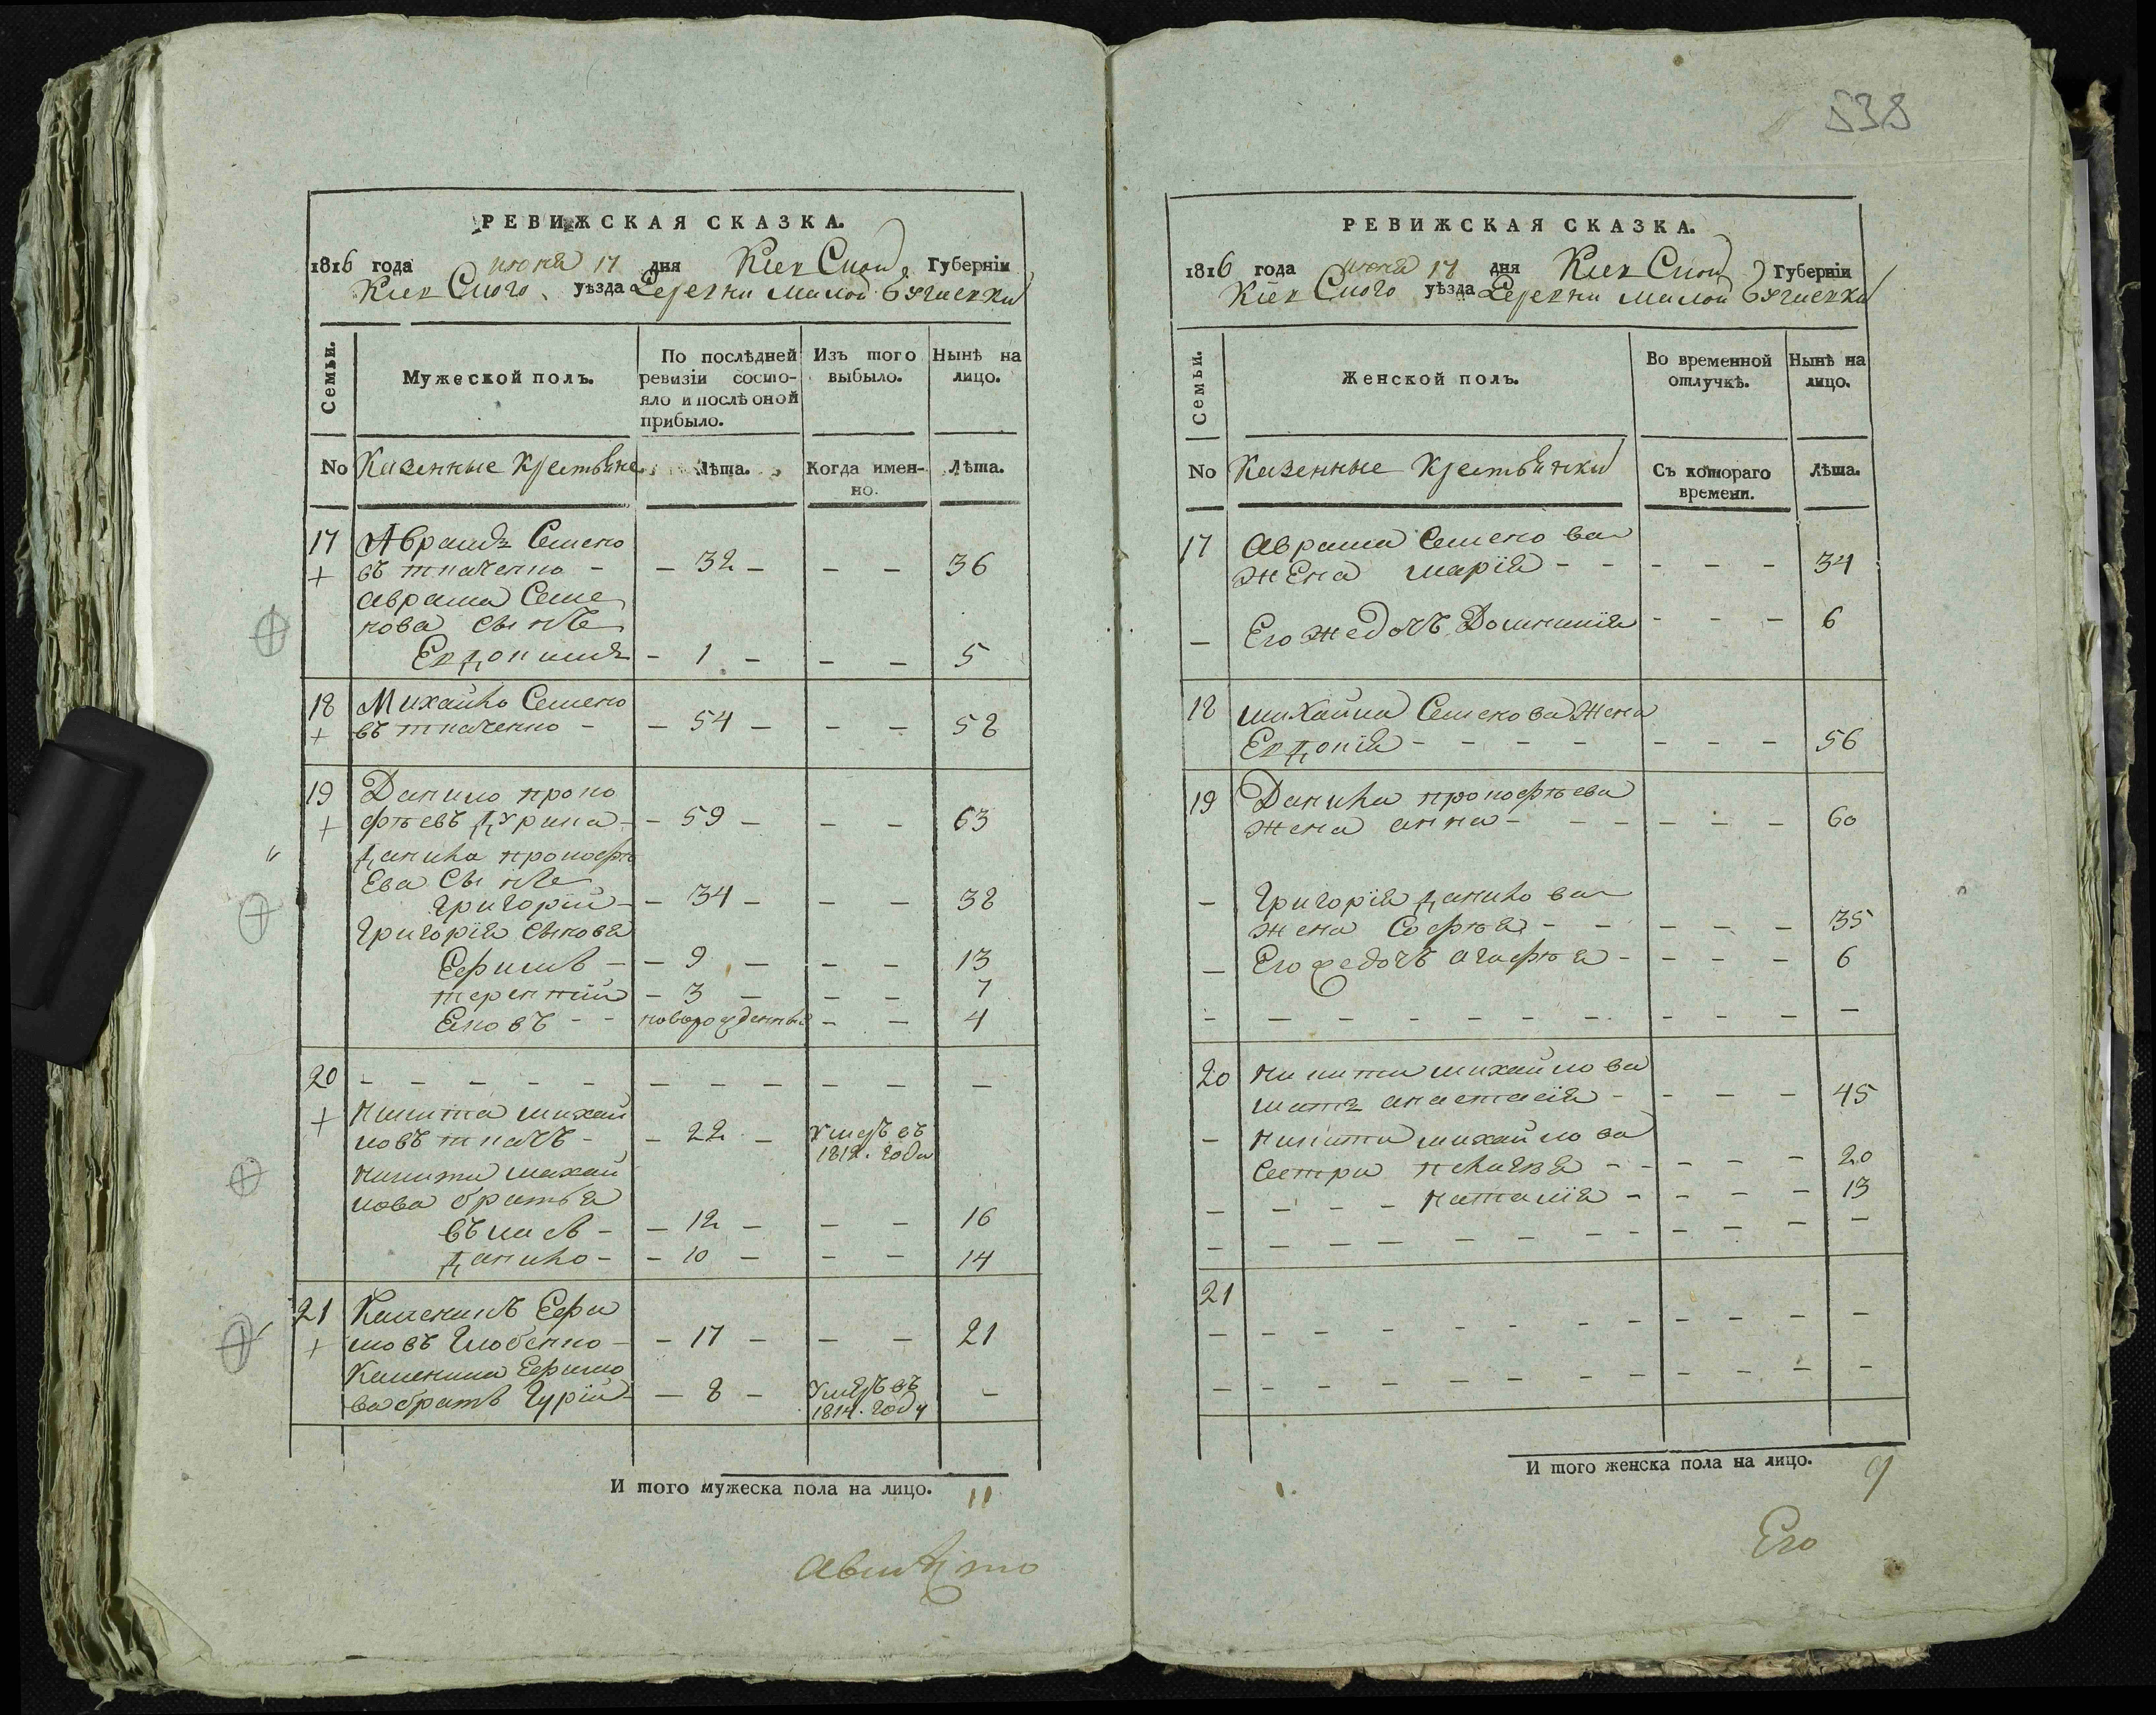 538
РЕВИЖСКАЯ СКАЗКА.
1816 года июня 17 дня Киевской Губерніи
Киевского уѣзда Деревни Малой Бугаевки
Семьи.
Мужеской полъ.
По послѣдней
ревизіи состо-
яло и послѣ оной
прибыло.
Изъ того
выбыло.
Нынѣ на
лицо.
No Казенные крестьяне Лѣта. Когда имен-
но. Лѣта.
17 Аврамъ Семено
въ ткаченко - - 32 - - - 36
+
Аврама Семе
нова сынъ
Евдокимъ - 1 - - - 5
18 Михайло Семено
въ ткаченко - - 54 - - - 58
+
19 Данило проко
фьевъ - 59 - - - 63
+
данила прокофь
ева сынъ
Григорий - - 34 - - - 38
Григорія сынова
Ефимъ - - 9 - - - 13
терентий - 3 - - - 7
Яковъ - - новорожденный - - 4
20 - - - - - - - - - - - -
+ Никита михай
ловъ ткачъ - - 22 - Умеръ въ
1812. года
Никиты михай
лова братья
- 12 - - - 16
данило - - 10 - - - 14
21 Климентъ Ефи
мовъ - 17 - - - 21
+
Ефимо
ва братъ Гурій - 8 - Умеръ въ
1814. году -
И того мужеска пола на лицо. 11
РЕВИЖСКАЯ СКАЗКА.
1816 года июня 17 дня Киевской Губерніи
Киевского уѣзда Деревни Малой Бугаевки
Семьи.
Женской полъ.
Во временной
отлучкѣ.
Нынѣ на
лицо.
No Казенные крестьянки Съ котораго
времени. Лѣта.
17 Аврама Семенова
жена марія - - - - - 34
- Его же дочъ Домникия - - - 6
18 михайла Семенова жена
Евдокія - - - - - - - 56
19 Данила прокофьева
жена анна - - - - - - 60
- Григорія данилова
жена Софья - - - - - 35
- Его же дочъ агафья - - - - 6
- - - - - - - - - - -
20 Никиты михайлова
мать анастасія - - - - 45
- Никиты михайлова
сестры пелагея - - - - - 20
- - - - наталія - - - - 13
- - - - - - - - - - - -
21
- - - - - - - - - - - -
- - - - - - - - - - - -
И того женска пола на лицо. 9
Его